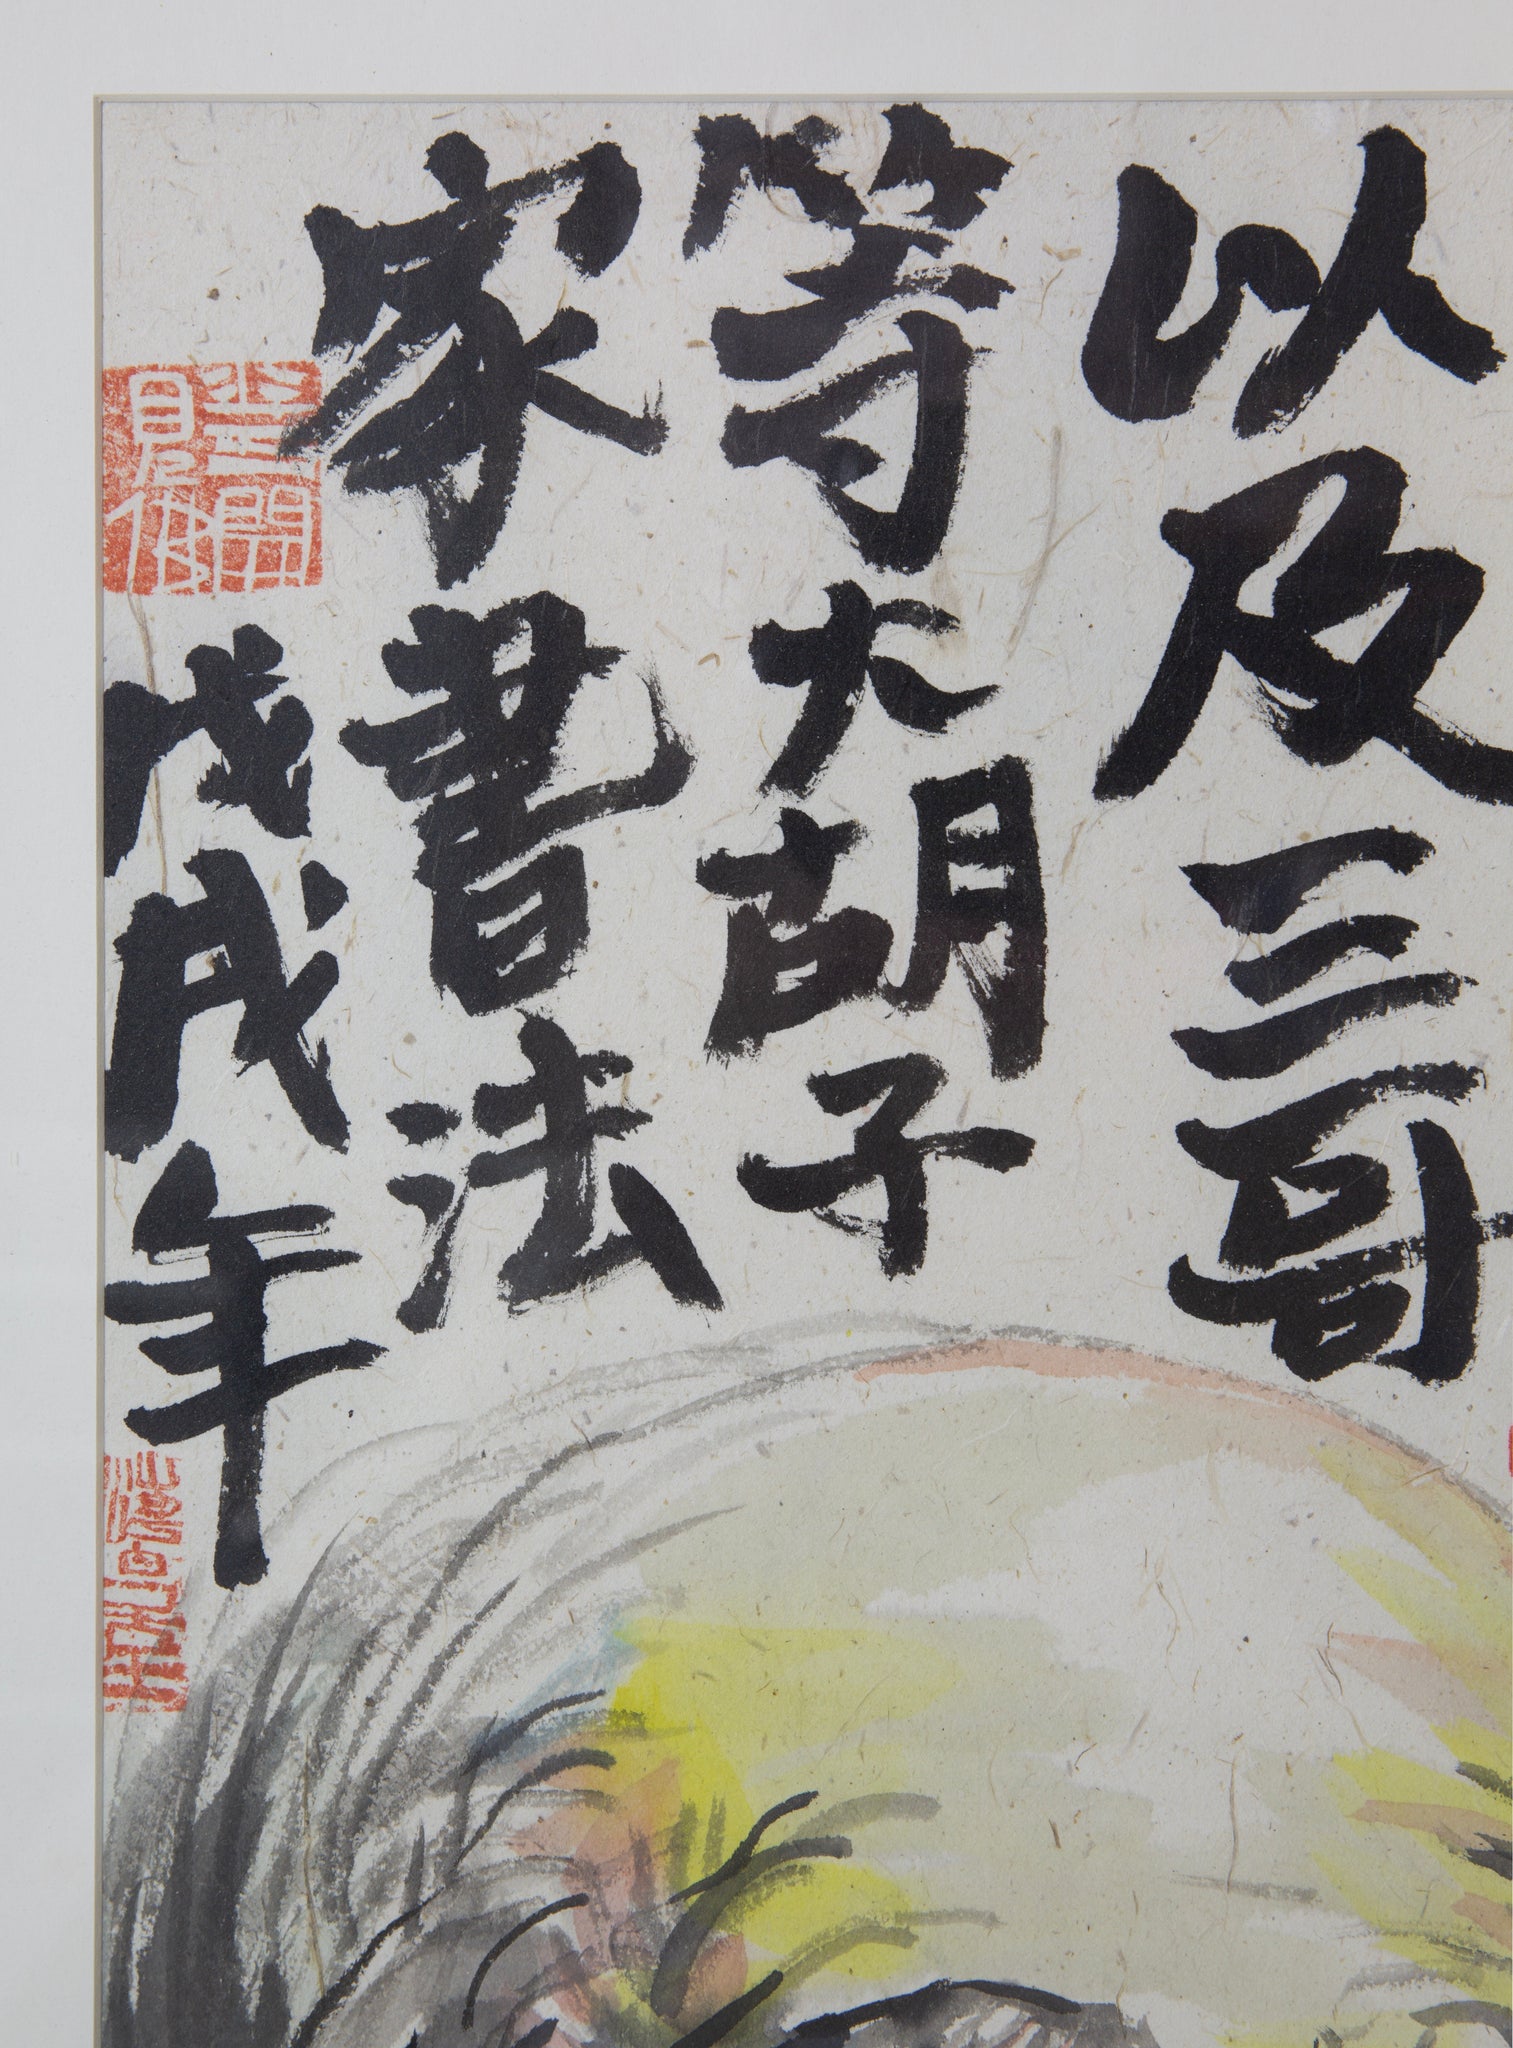 以及三哥
等大胡子
家書法
戊戌年